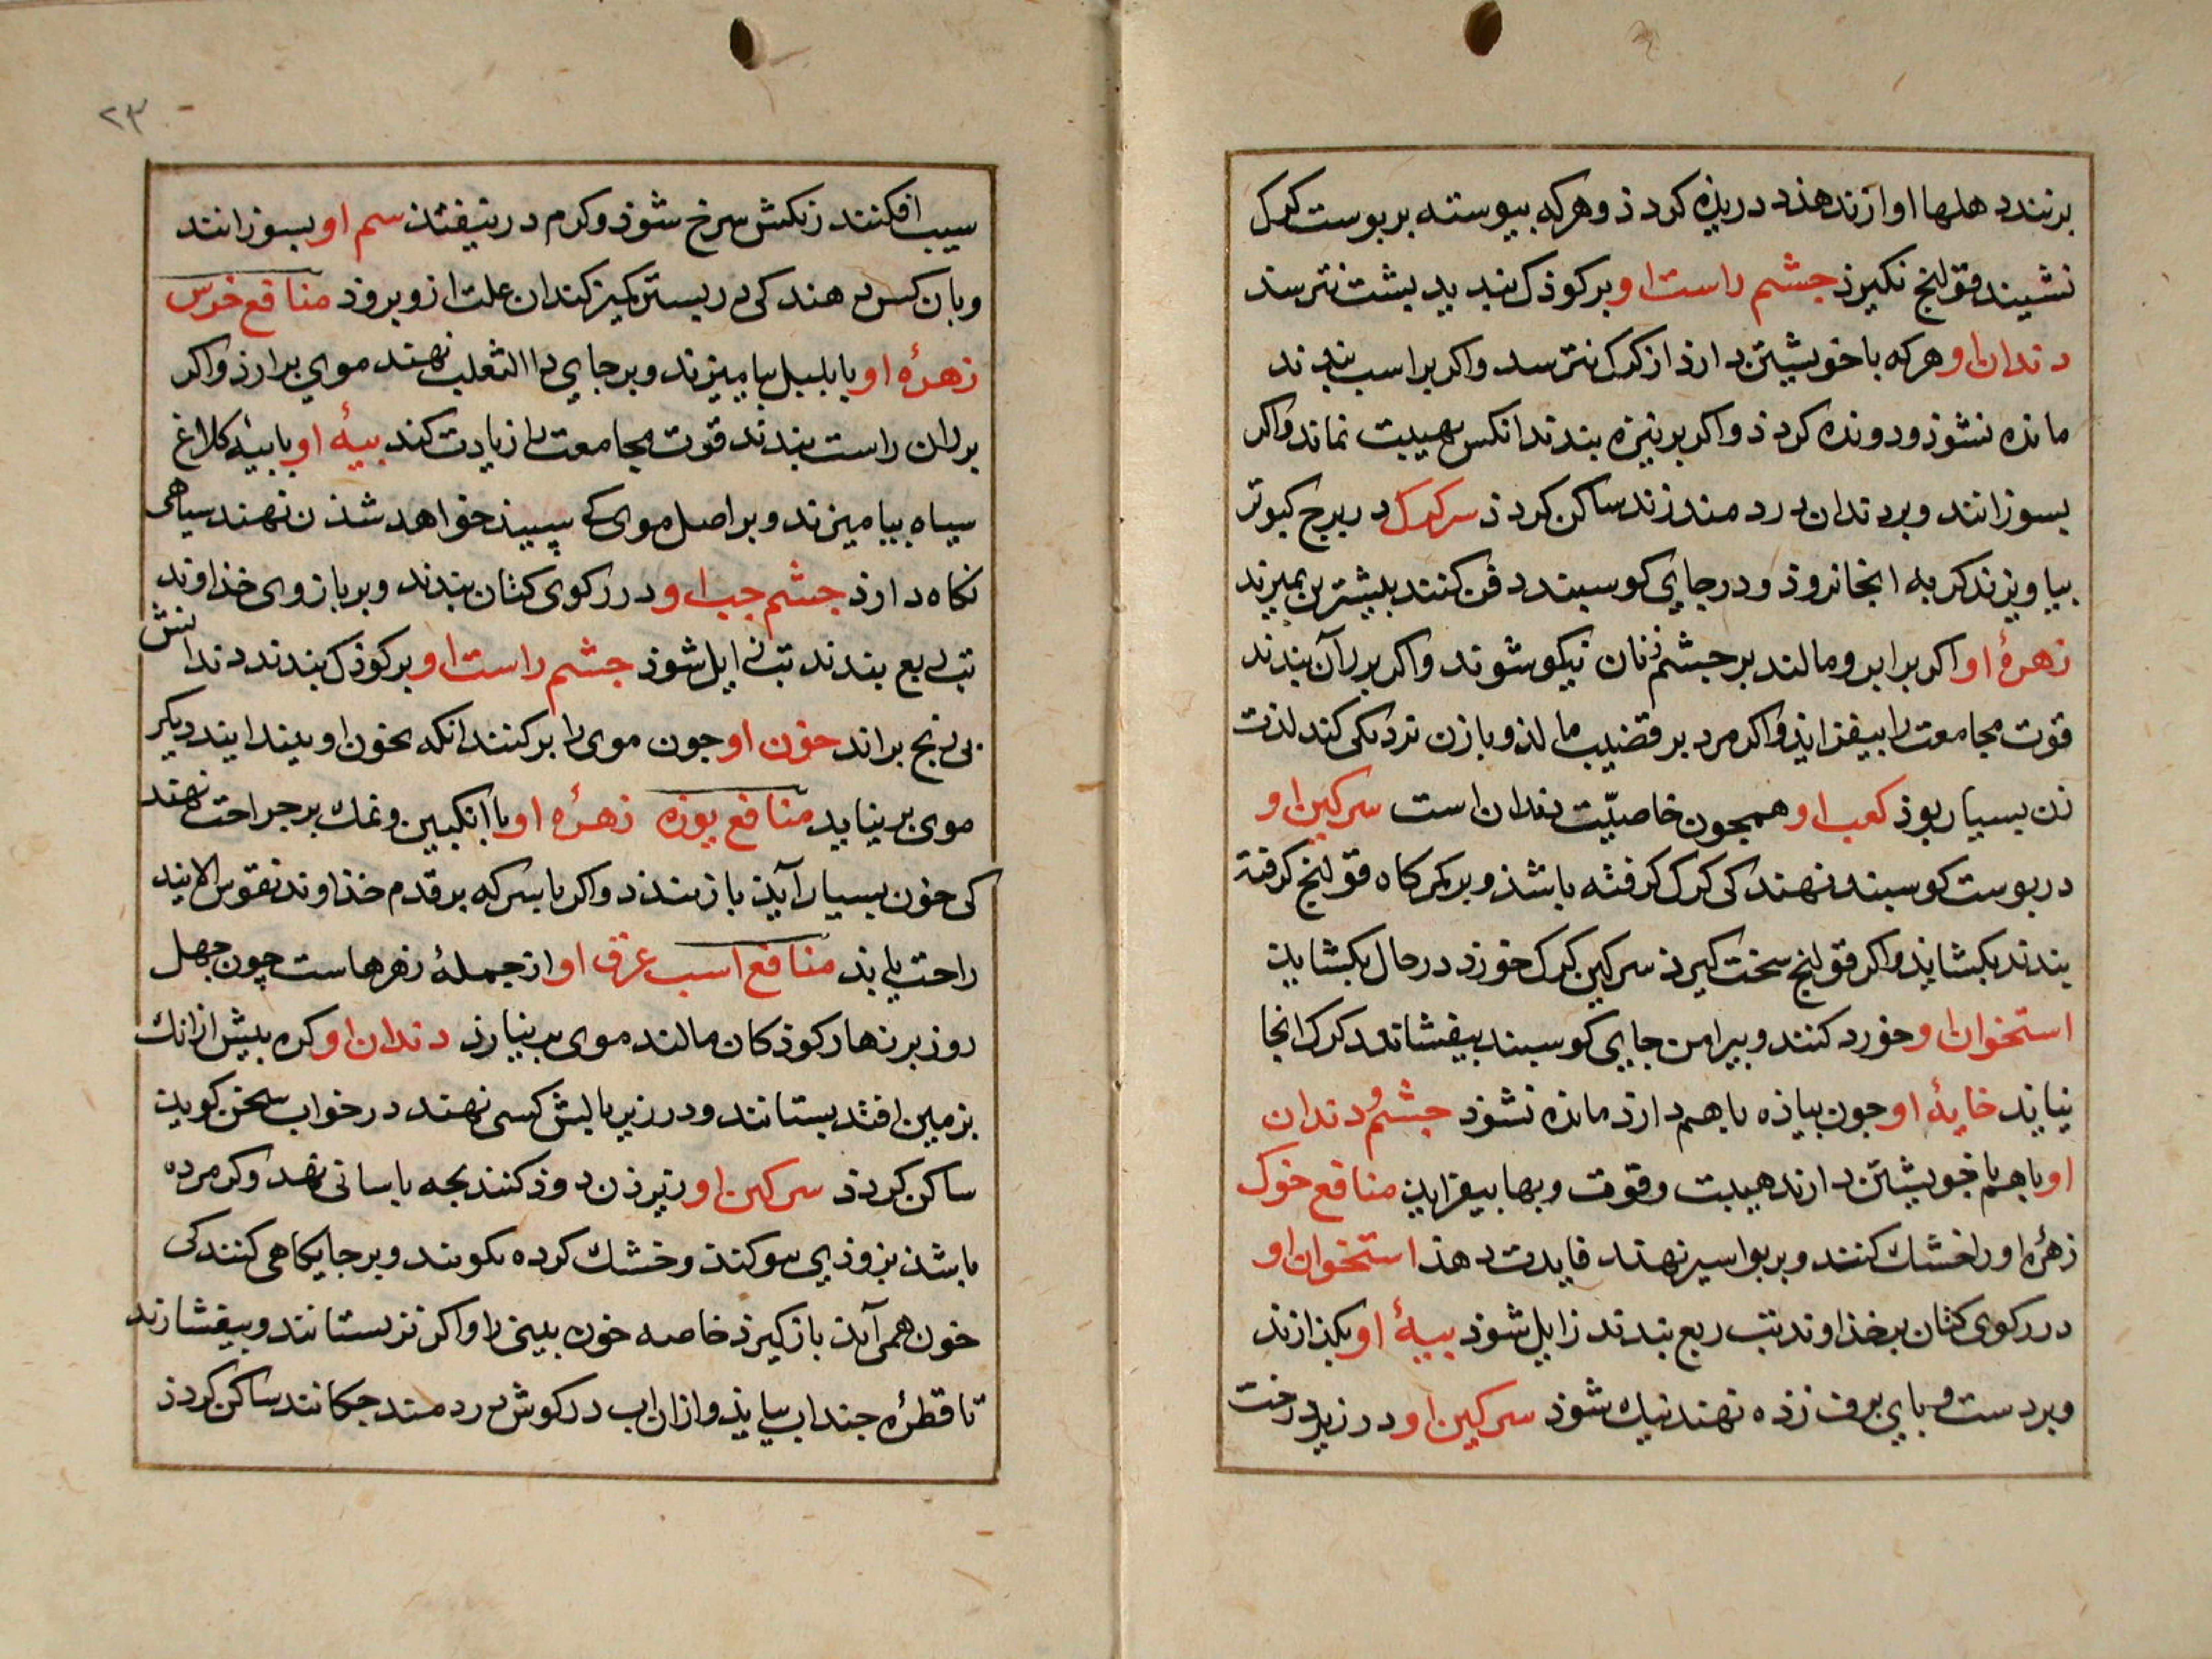 برنندد هلها اوازند هذ دریذه کردذ و هرکه بیوسته بر بوست کرک
نشیند قولنج نکیرذ جشم راست او بر کوذک بندید بشت نترسذ
دندان او هرکه با خویشتن دارذ از کرک نترسد واکر بر اسب بندند
مانده نشوذ و دونده کردذ واکر بر نیزه بندند انکس بهیبت نماند واکر
بسوزانند و بر دندان درد مند زند ساکن کردذ سر کرک در برج کبوتر
بیاویزند کربه انجا نروذ و در جای کوسبند دفن کنند بیشترین بمیرند
زهرهٔ او اکر بر ابرو مالند بر جشم زنان نیکو شوند واکر بر ران بندند
قوت مجامعت را بیفزایذ واکر مرد بر قضیب مالذ و با زن نزدیکی کند لذت
زن بسیار بوذ کعب او همجون خاصیّت دندان است سرکین او
در بوست کوسبند نهند کی کرک کرفته باشذ و بر کمرکاه قولنج کرفته
بندند بکشایذ واکر قولنج سخت کیرذ سرکین کرک خورد در حال بکشاید
استخوان او خورد کنند و بیرامن جای کوسبند بیفشانند کرک انجا
نیاید خایهٔ او جون بیاذه با هم دارذ مانده نشوذ جشم و دندان
او با هم با خویشتن دارند هیبت و قوت و بها بیفزاید منافع خوک
زهرهٔ او را خشک کنند و بر بواسیر نهند فایدت دهذ استخوان او
در رکوی کتان بر خذاوند تب ربع بندند زایل شوذ بیهٔ او بکذازند
و بر دست و بای برف زذه نهند نیک شوذ سرکین او در زیر درخت
سیب افکنند رنکش سرخ شوذ و کرم در نیفتد سم او بسوزانند
و بان کس دهند کی در بستر کمیز کند ان علت از و بروذ منافع خرس
زهرهٔ او با بلبل بیامیزند و بر جای داالثعلب نهند موی برارذ واکر
بر ران راست بندند قوت مجامعت را زیادت کند بیهٔ او با بیه کلاغ
سیاه بیامیزند و بر اصل موی کی سپیذ خواهد شذن نهند سیاهی
نکاه دارذ جشم جب او در رکوی کتان بندند و بر بازوی خذاوند
تب ربع بندند تب زایل شوذ جشم راست او بر کوذک بندند دندانش
بی رنج براند خون او جون موی را بر کنند انکه بخون او بیندایند دیکر
موی بر نیاید منافع یوزه زهرهٔ او با انکبین و نمک بر جراحت نهند
کی خون بسیار آید باز بندد واکر با سرکه بر قدم خذاوند نقرس الایند
راحت یابذ منافع اسب عرق او از جملهٔ زهرهاست چون جهل
روز بر زهار کوذکان مالند موی بر نیارذ دندان او کره بیش ازانک
بزمین افتد بستانند و در زیر بالش کسی نهند در خواب سخن کوید
ساکن کردذ سرکین او زیر زن دوذ کنند بجه باسانی نهد وکر مرده
باشذ بزوذی بیوکند و خشک کرده بکوبند و بر جایکاهی کنند کی
خون همی آید باز کیرذ خاصه خون بینی را واکر تر بستانند و بیفشارند
تا قطرهٔ جند اب بیایذ و ازان اب در کوش درد مند جکانند ساکن کردذ
۲۳